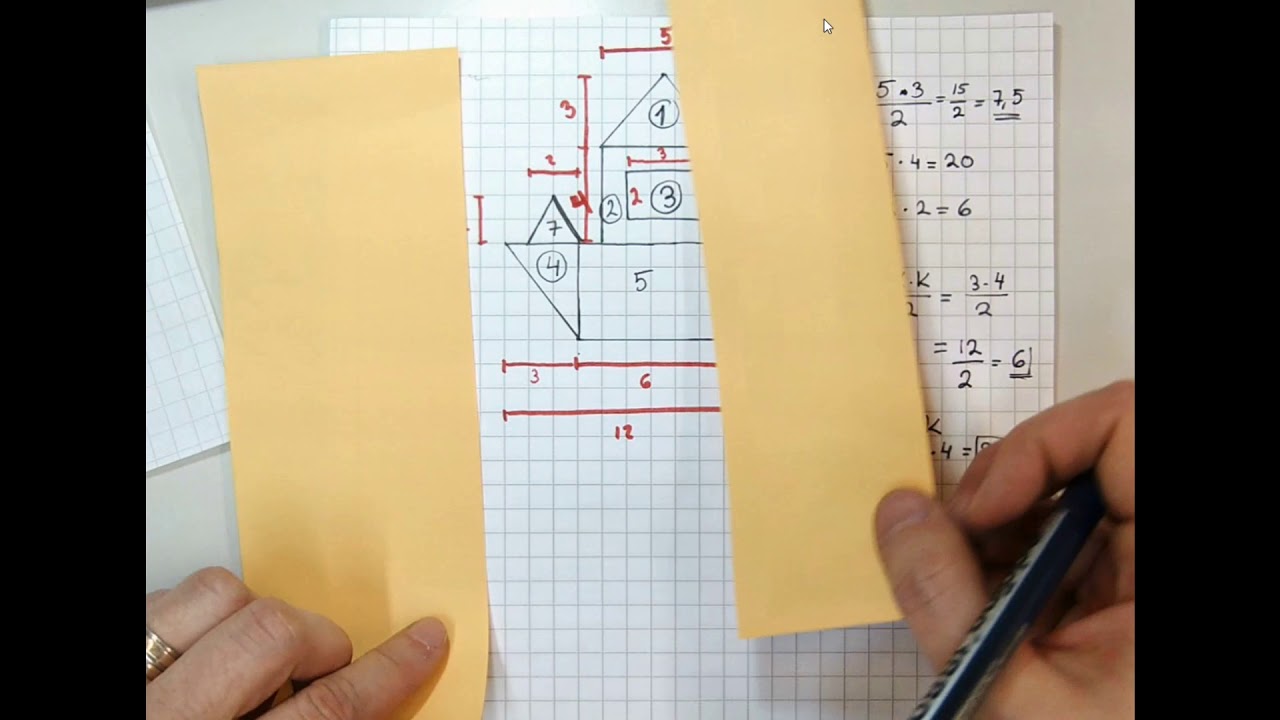 5
3
1
2
3
2
2
3
4
7
4
5
3
6
12
5 · 3 / 2 = 15 / 2 = 7,5
· 4 = 20
· 2 = 6
· K / 2 = 3 · 4 / 2
= 12 / 2 = 6
K
· 4 =